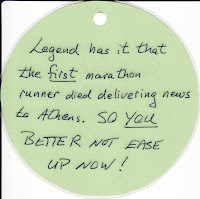 Legend has it that
the first marathon
runner died delivering news
to Athens. SO YOU
BETTER NOT EASE
UP NOW!